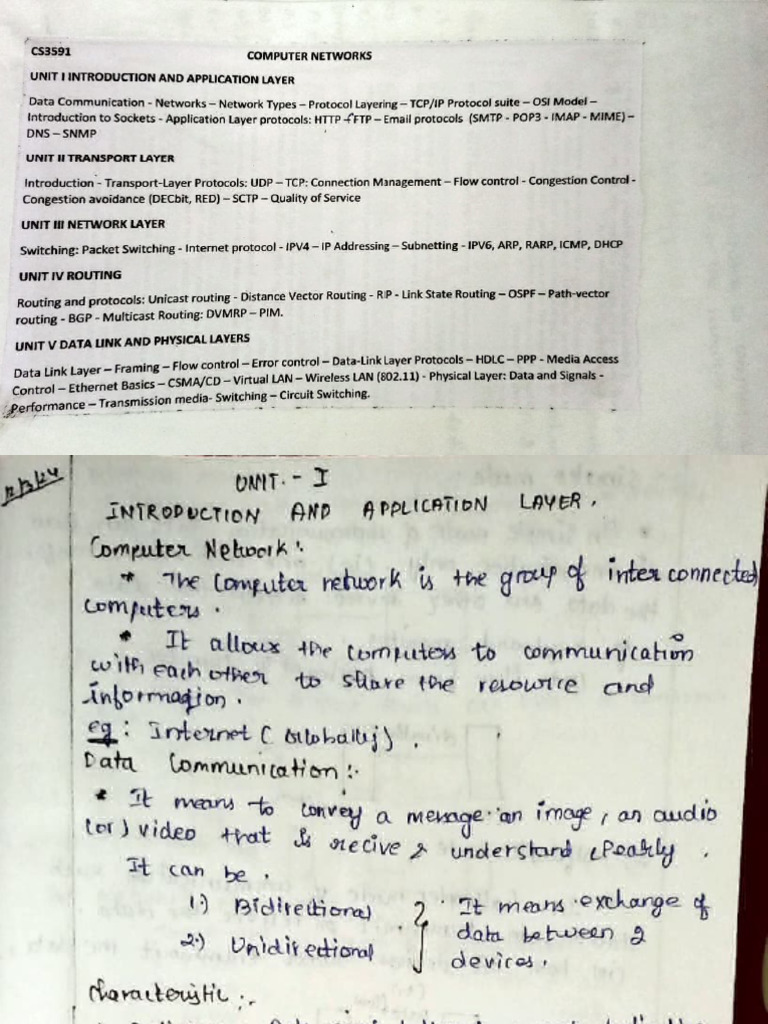 CS3591
COMPUTER NETWORKS
UNIT I INTRODUCTION AND APPLICATION LAYER
Data Communication - Networks – Network Types – Protocol Layering – TCP/IP Protocol suite – OSI Model –
Introduction to Sockets - Application Layer protocols: HTTP – FTP – Email protocols (SMTP - POP3 - IMAP - MIME) –
DNS – SNMP
UNIT II TRANSPORT LAYER
Introduction - Transport-Layer Protocols: UDP – TCP: Connection Management – Flow control - Congestion Control -
Congestion avoidance (DECbit, RED) – SCTP – Quality of Service
UNIT III NETWORK LAYER
Switching: Packet Switching - Internet protocol - IPV4 – IP Addressing – Subnetting - IPV6, ARP, RARP, ICMP, DHCP
UNIT IV ROUTING
Routing and protocols: Unicast routing - Distance Vector Routing - RIP - Link State Routing – OSPF – Path-vector
routing - BGP - Multicast Routing: DVMRP – PIM.
UNIT V DATA LINK AND PHYSICAL LAYERS
Data Link Layer – Framing – Flow control – Error control – Data-Link Layer Protocols – HDLC – PPP - Media Access
Control – Ethernet Basics – CSMA/CD – Virtual LAN – Wireless LAN (802.11) - Physical Layer: Data and Signals -
Performance – Transmission media- Switching – Circuit Switching.
UNIT - I
INTRODUCTION AND APPLICATION LAYER.
Computer Network:
* The computer network is the group of inter connected
computers.
* It allows the computers to communication
with each other to share the resource and
information.
eg: Internet (Globally).
Data Communication:-
* It means to convey a message an image, an audio
(or) video that is recive & understand clearly.
It can be.
1.) Bidirectional } It means exchange of
data between 2
2.) Unidirectional
devices.
Characteristic:-